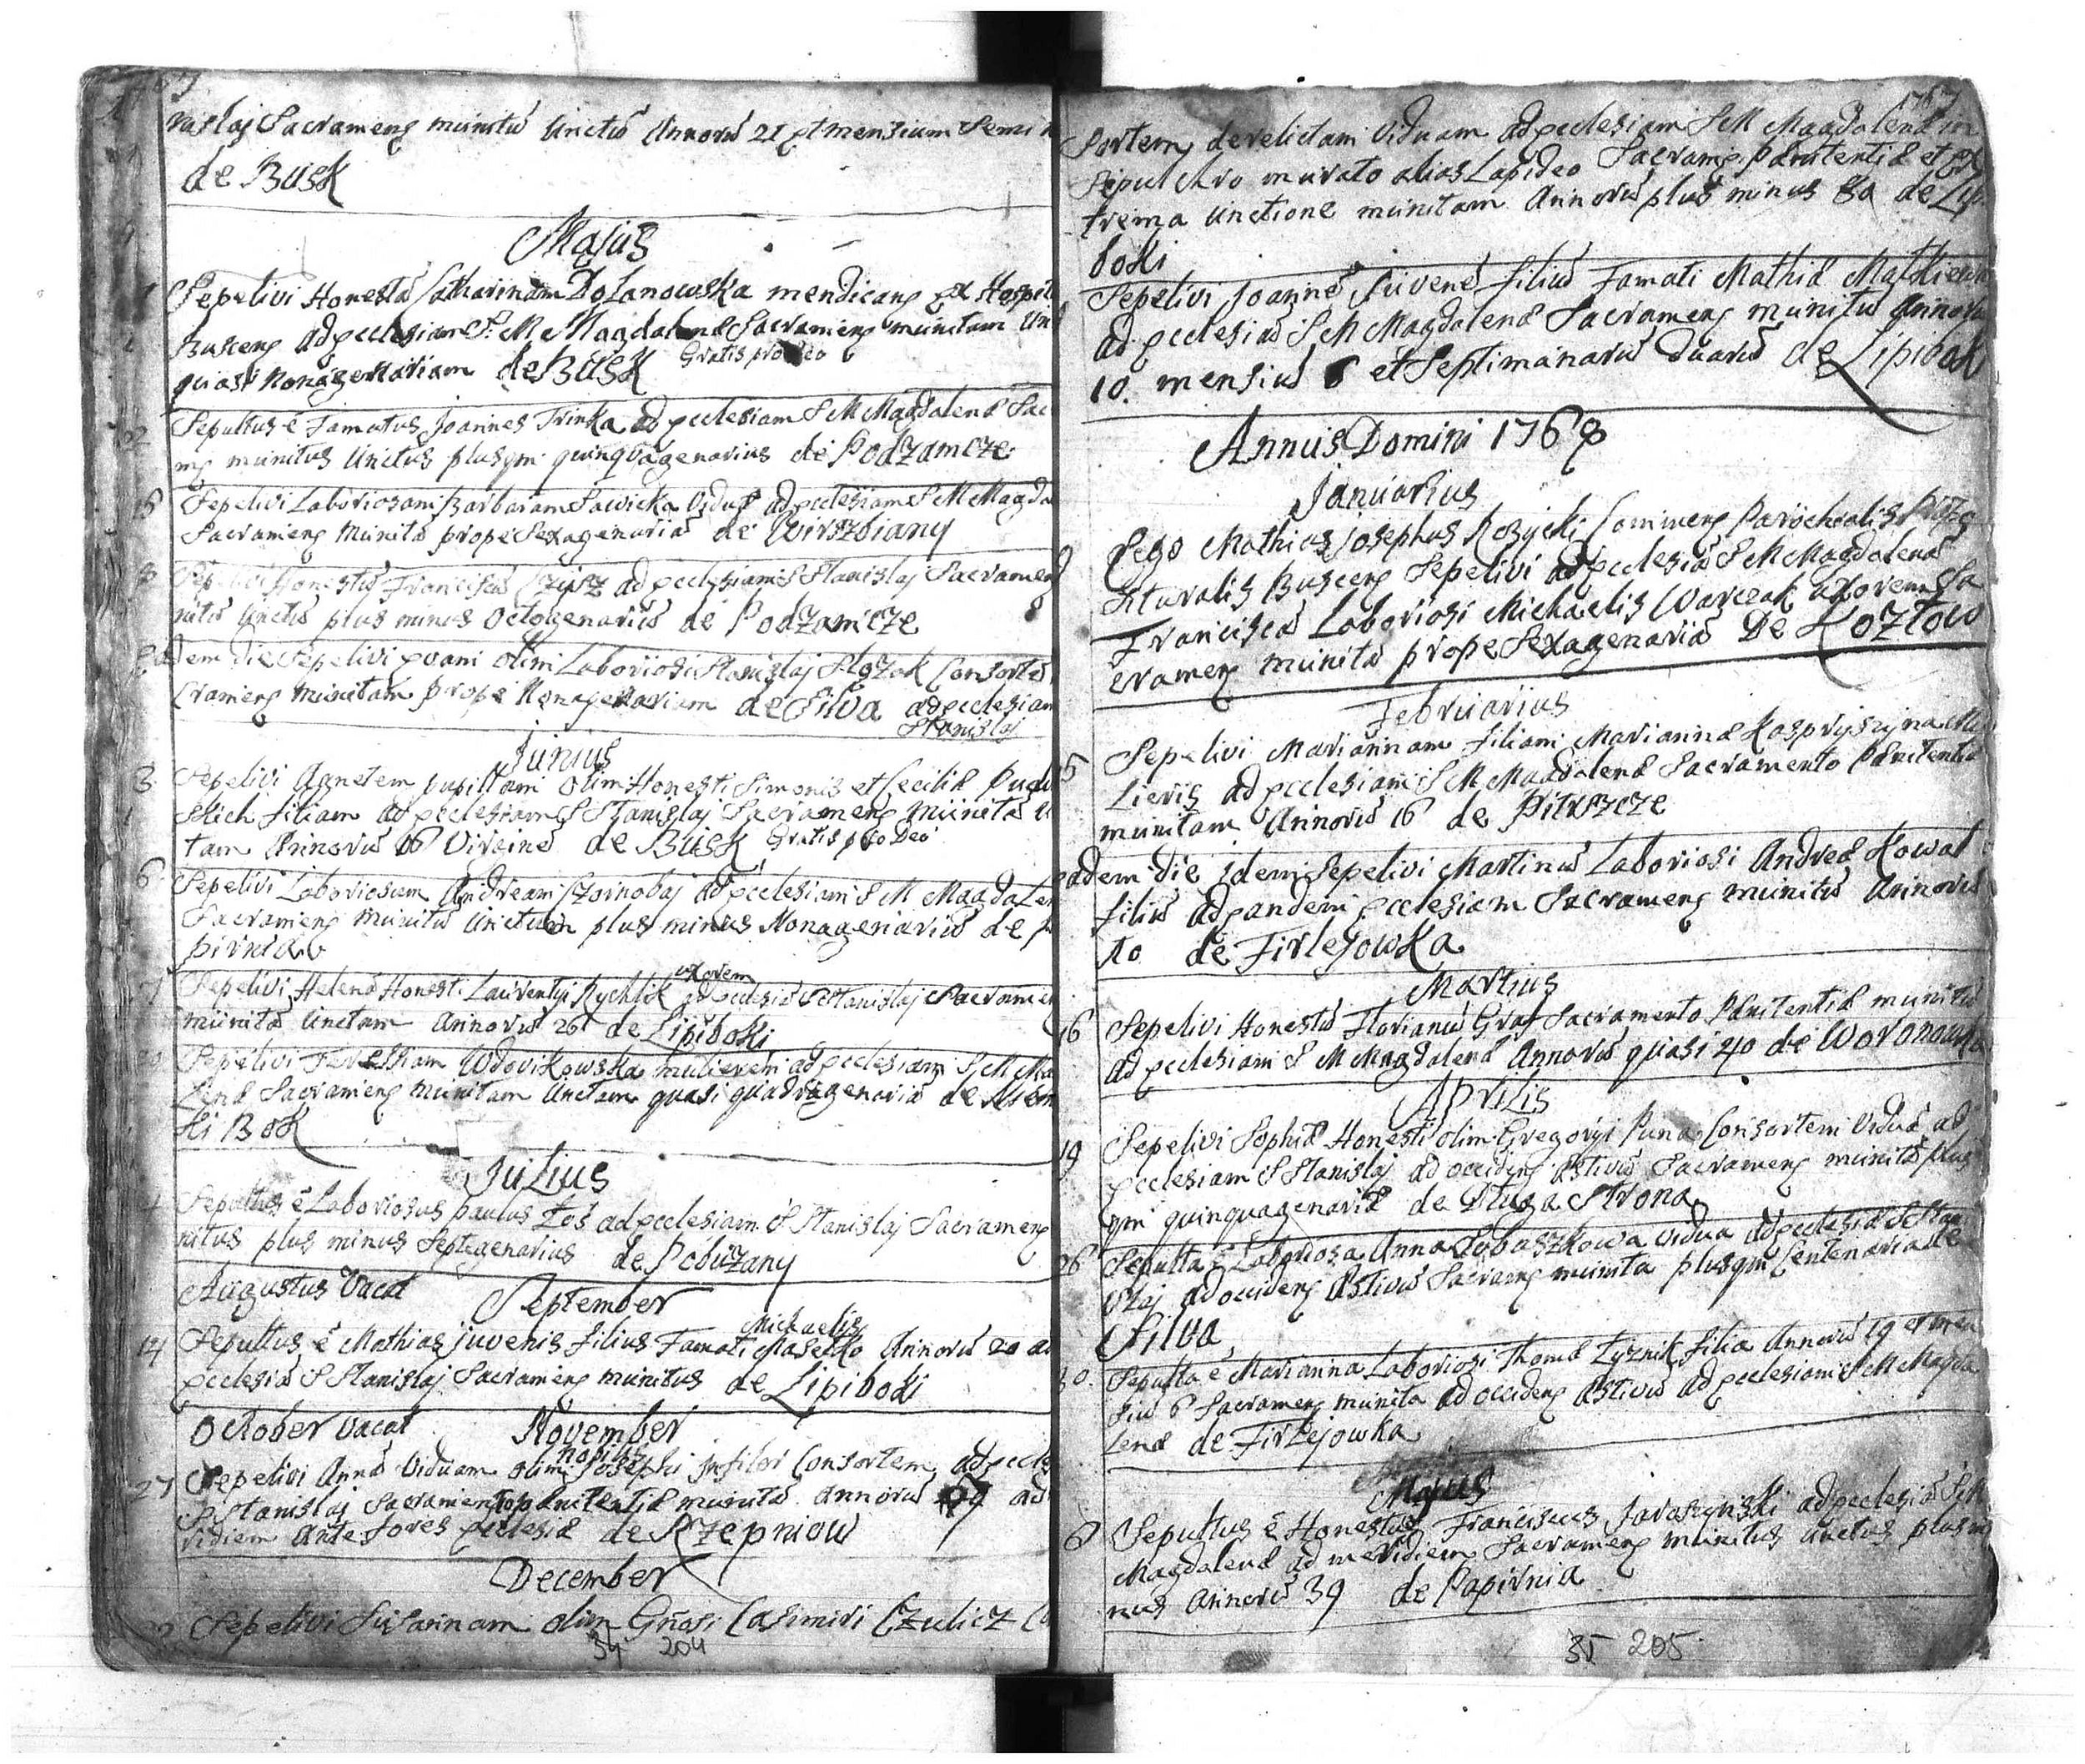 1767
nislaj Sacrameng munitū Unctū Annorū 21 et mensium Semi
de Busk
Majus
Sepelivi Honestā Catharinam Dolanowska mendicang ex Hospit
Busceng ad ecclesiam S. M Magdalenæ Sacrameng munitam Un
quasi Nonagenariam de Busk Gratis pro Deo
12 Sepultus ē Famatus Joannes Trinka ad ecclesiam S M Magdalenæ Sac
mg munitus Unctus plusqm quinquagenarius de Podzamcze
15 Sepelivi Laboriosam Barbaram Sawicka Viduā ad ecclesiam S M Magda
Sacrameng Munitā prope Sexagenariā de Wirzbiany
8 Sepelivi Honestū Franciscū Czysz ad ecclesiam S Stanislaj Sacrameng
nitū Unctū plus minus Octogenariū de Podzamcze
Eadem die Sepelivi olim Laboriosi Stanislaj Slozak Consortē
crameng munitam prope Nonagenariam de Silva ad ecclesiam
Stanislaj
Junius
3 Sepelivi Agnetem pupillam olim Honesti Simonis et Ceciliæ
skich filiam ad ecclesiam S Stanislaj Sacrameng munitā U
tam Annorū 16 Virginē de Busk Gratis pro Deo
6 Sepelivi Laboriosum Andream Czornobaj ad ecclesiam S M Magdalen
Sacrameng munitū Unctum plus minus Nonagenariū de
pirnia
7 Sepelivi Helenā Honesti Laurentyi Rychlik uxorem ad ecclesiā S Stanislaj Sacramen
munitā Unctam Annorū 26 de Lipiboki
20 Sepelivi Teressiam Wdovikowska mulierem ad ecclesiam S M Ma
lenæ Sacrameng munitam Unctam quasi quadragenariā de Niem
ki Bok
Julius
4 Sepultus ē Laboriosus Paulus Łoś ad ecclesiam S Stanislaj Sacrameng
nitus plus minus Septegenarius de Pobużany
Augustus Vacat September
14 Sepultus ē Mathias juvenis filius Famati Michaelis Masełko Annorū 20 ad
ecclesiā S Stanislaj Sacrameng munitus de Lipiboki
October vacat November
27 Sepelivi Annā Viduam olim Nobilis Josephi Consortem ad eccle
S Stanislaj Sacramento pænitentiæ munitā Annorū 79 ad
ridiem ante fores ecclesiæ de Rzepniow
December
Sepelivi Susannam olim Gnosi Casimiri Czulicz Co
34 204
1767
Sortem derelictam Viduam ad ecclesiam S M Magdalenæ in
Sepulchro murato alias Lapideo Sacramg pænitentiæ et ex
trema Unctione munitam Annorū plus minus 80 de Lip
boki
Sepelivi Joannē Juvenē filiū Famati Mathiæ Matkiew
ad ecclesiā S M Magdalenæ Sacrameng munitū Annoru
10. mensiū 6 et Septimanarū duarū de Lipibok
Annus Domini 1768
Januarius
Ego Mathias Josephus Rozycki Commeng Parochialis Præpo
situralis Busceng Sepelivi ad ecclesiā S M Magdalenæ
Franciscā Laboriosi Michaelis Warczak uxorem Sa
crameng munitā prope Sexagenariā De Kozłow
Februarius
5 Sepelivi Mariannam filiam Mariannæ Kasprzyszyna Mu
lieris ad ecclesiam S M Magdalenæ Sacramento Pænitentiæ
munitam Annorū 16 de Pitrszcze
eadem die idem Sepelivi Martinū Laboriosi Andreæ Kowal
filiū ad eandem ecclesiam Sacrameng munitū Annorū
10 de Firlejowka
Martius
16 Sepelivi Honestū Florianū Graf Sacramento Pænitentiæ munitū
ad ecclesiam S M Magdalenæ Annorū quasi 40 de Woronow
Aprilis
19 Sepelivi Sophiā Honesti olim Gregoryi Puna Consortem Viduā ad
ecclesiam S Stanislaj ad occideng æstivū Sacrameng munitā plus
qm quinquagenariā de Dluga Strona
26 Sepulta ē Laboriosa Anna Lobaszkowa vidua ad ecclesiā S Stan
islaj ad occideng æstivū Sacrameng munita plusqm Centenaria de
Silva
30. Sepulta ē Marianna Laboriosi Thomæ Łyznik filia Annorū 19 et men
siū 6 Sacrameng munita ad occideng æstivū ad ecclesiam S M Magda
lenæ de Firlejowka
Majus
8 Sepultus ē Honestus Franciscus Jaroszynski ad ecclesiā S M
Magdalenæ ad meridiem Sacrameng munitus Unctus plus mi
nus Annorū 39 de Papirnia
35 205